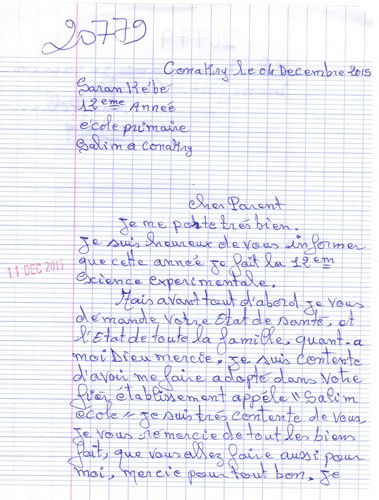 20779
Conakry le 04 Decembre 2015
Saran Kébé
12eme Année
école primaire
Salim a Conakry
cher Parent
Je me porte très bien.
Je suis heureux de vous informer
11 DEC 2015
que cette année je fait la 12em
Science experimentale.
Mais avant tout d'abord je vous
demande votre Etat de santé, et
l'Etat de toute la famille, quant-a
moi Dieu mercie, je suis contente
d'avoir me faire adopté dans votre
fier établissement appelé " Salim
école " je suis très contente de vous
Je vous remercie de tout les biens
fait, que vous allez faire aussi pour
moi, mercie pour tout bon. Je